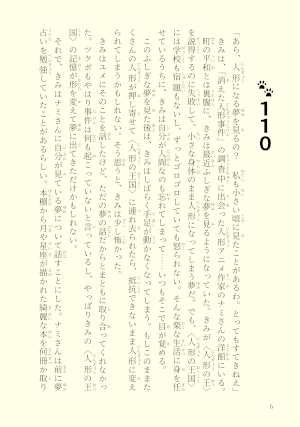 110
「あら、人形になる夢を見るの？　私も小さい頃に見たことがあるわ。とってもすてきねえ」
きみは、〈消えた人形事件〉の調査中に出会った人形アニメ作家のナミさんの洋館にいる。
町の平和とは裏腹に、きみは最近ふしぎな夢を見るようになっていた。きみが〈人形の王〉
を説得するのに失敗して、小さな身体のまま人形になってしまう夢だ。でも、〈人形の王国〉
には学校も宿題もないし、ずっとゴロゴロしていても怒られない。そんな楽な生活に身を任
せているうちに、きみは自分が人間なのも忘れてしまって……いつもそこで目が覚める。
このふしぎな夢を見た後は、きみはしばらく手足が動かなくなってしまう。もしこのままた
くさんの人形が押し寄せて〈人形の王国〉に連れ去られたら、抵抗できないまま人形に変え
られてしまうかもしれない。そう思うと、きみは少し怖かった。
きみはユメにそのことを話したけど、ただの夢の話だからとまともに取り合ってくれなかっ
た。ツクボもやはり事件は何も起こっていないと言っているし、やっぱりきみの〈人形の王
国〉の記憶が形を変えて夢に出てきただけかもしれない。
それで、きみはナミさんに自分が見ている夢について話すことにした。ナミさんは前に夢
占いを勉強していたことがあるらしい。本棚から月や星座が描かれた綺麗な本を何冊か取り
6